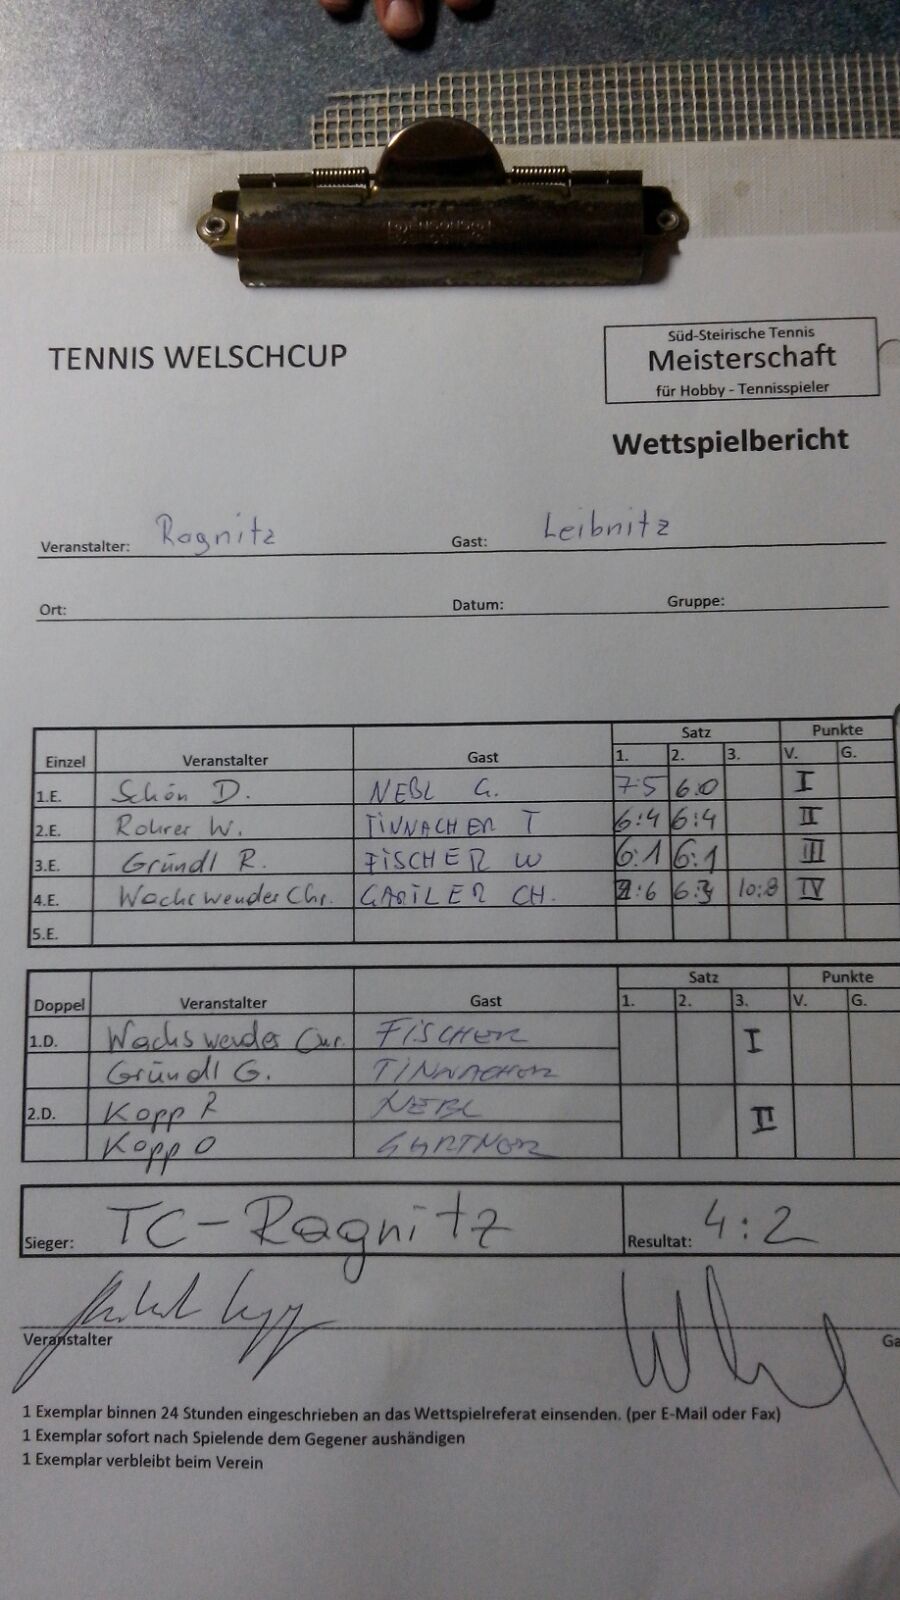 TENNIS WELSCHCUP
Süd-Steirische Tennis
Meisterschaft
für Hobby - Tennisspieler
Wettspielbericht
Veranstalter: Ragnitz Gast: Leibnitz
Ort: Datum: Gruppe:
Satz Punkte
Einzel Veranstalter Gast 1. 2. 3. V. G.
1.E. Schön D. NEBL G. 7:5 6:0 I
2.E. Rohrer W. TINNACHER T 6:4 6:4 II
3.E. Gründl R. FISCHER W 6:1 6:1 III
4.E. Wachswender Chr. CH. :6 6:3 10:8 IV
5.E.
Satz Punkte
Doppel Veranstalter Gast 1. 2. 3. V. G.
1.D. Wachswender Chr. FISCHER I
Gründl G. TINNACHER
2.D. Kopp R NEBL II
Kopp O GARTNER
Sieger: TC-Ragnitz Resultat: 4:2
Veranstalter Ga
1 Exemplar binnen 24 Stunden eingeschrieben an das Wettspielreferat einsenden. (per E-Mail oder Fax)
1 Exemplar sofort nach Spielende dem Gegener aushändigen
1 Exemplar verbleibt beim Verein